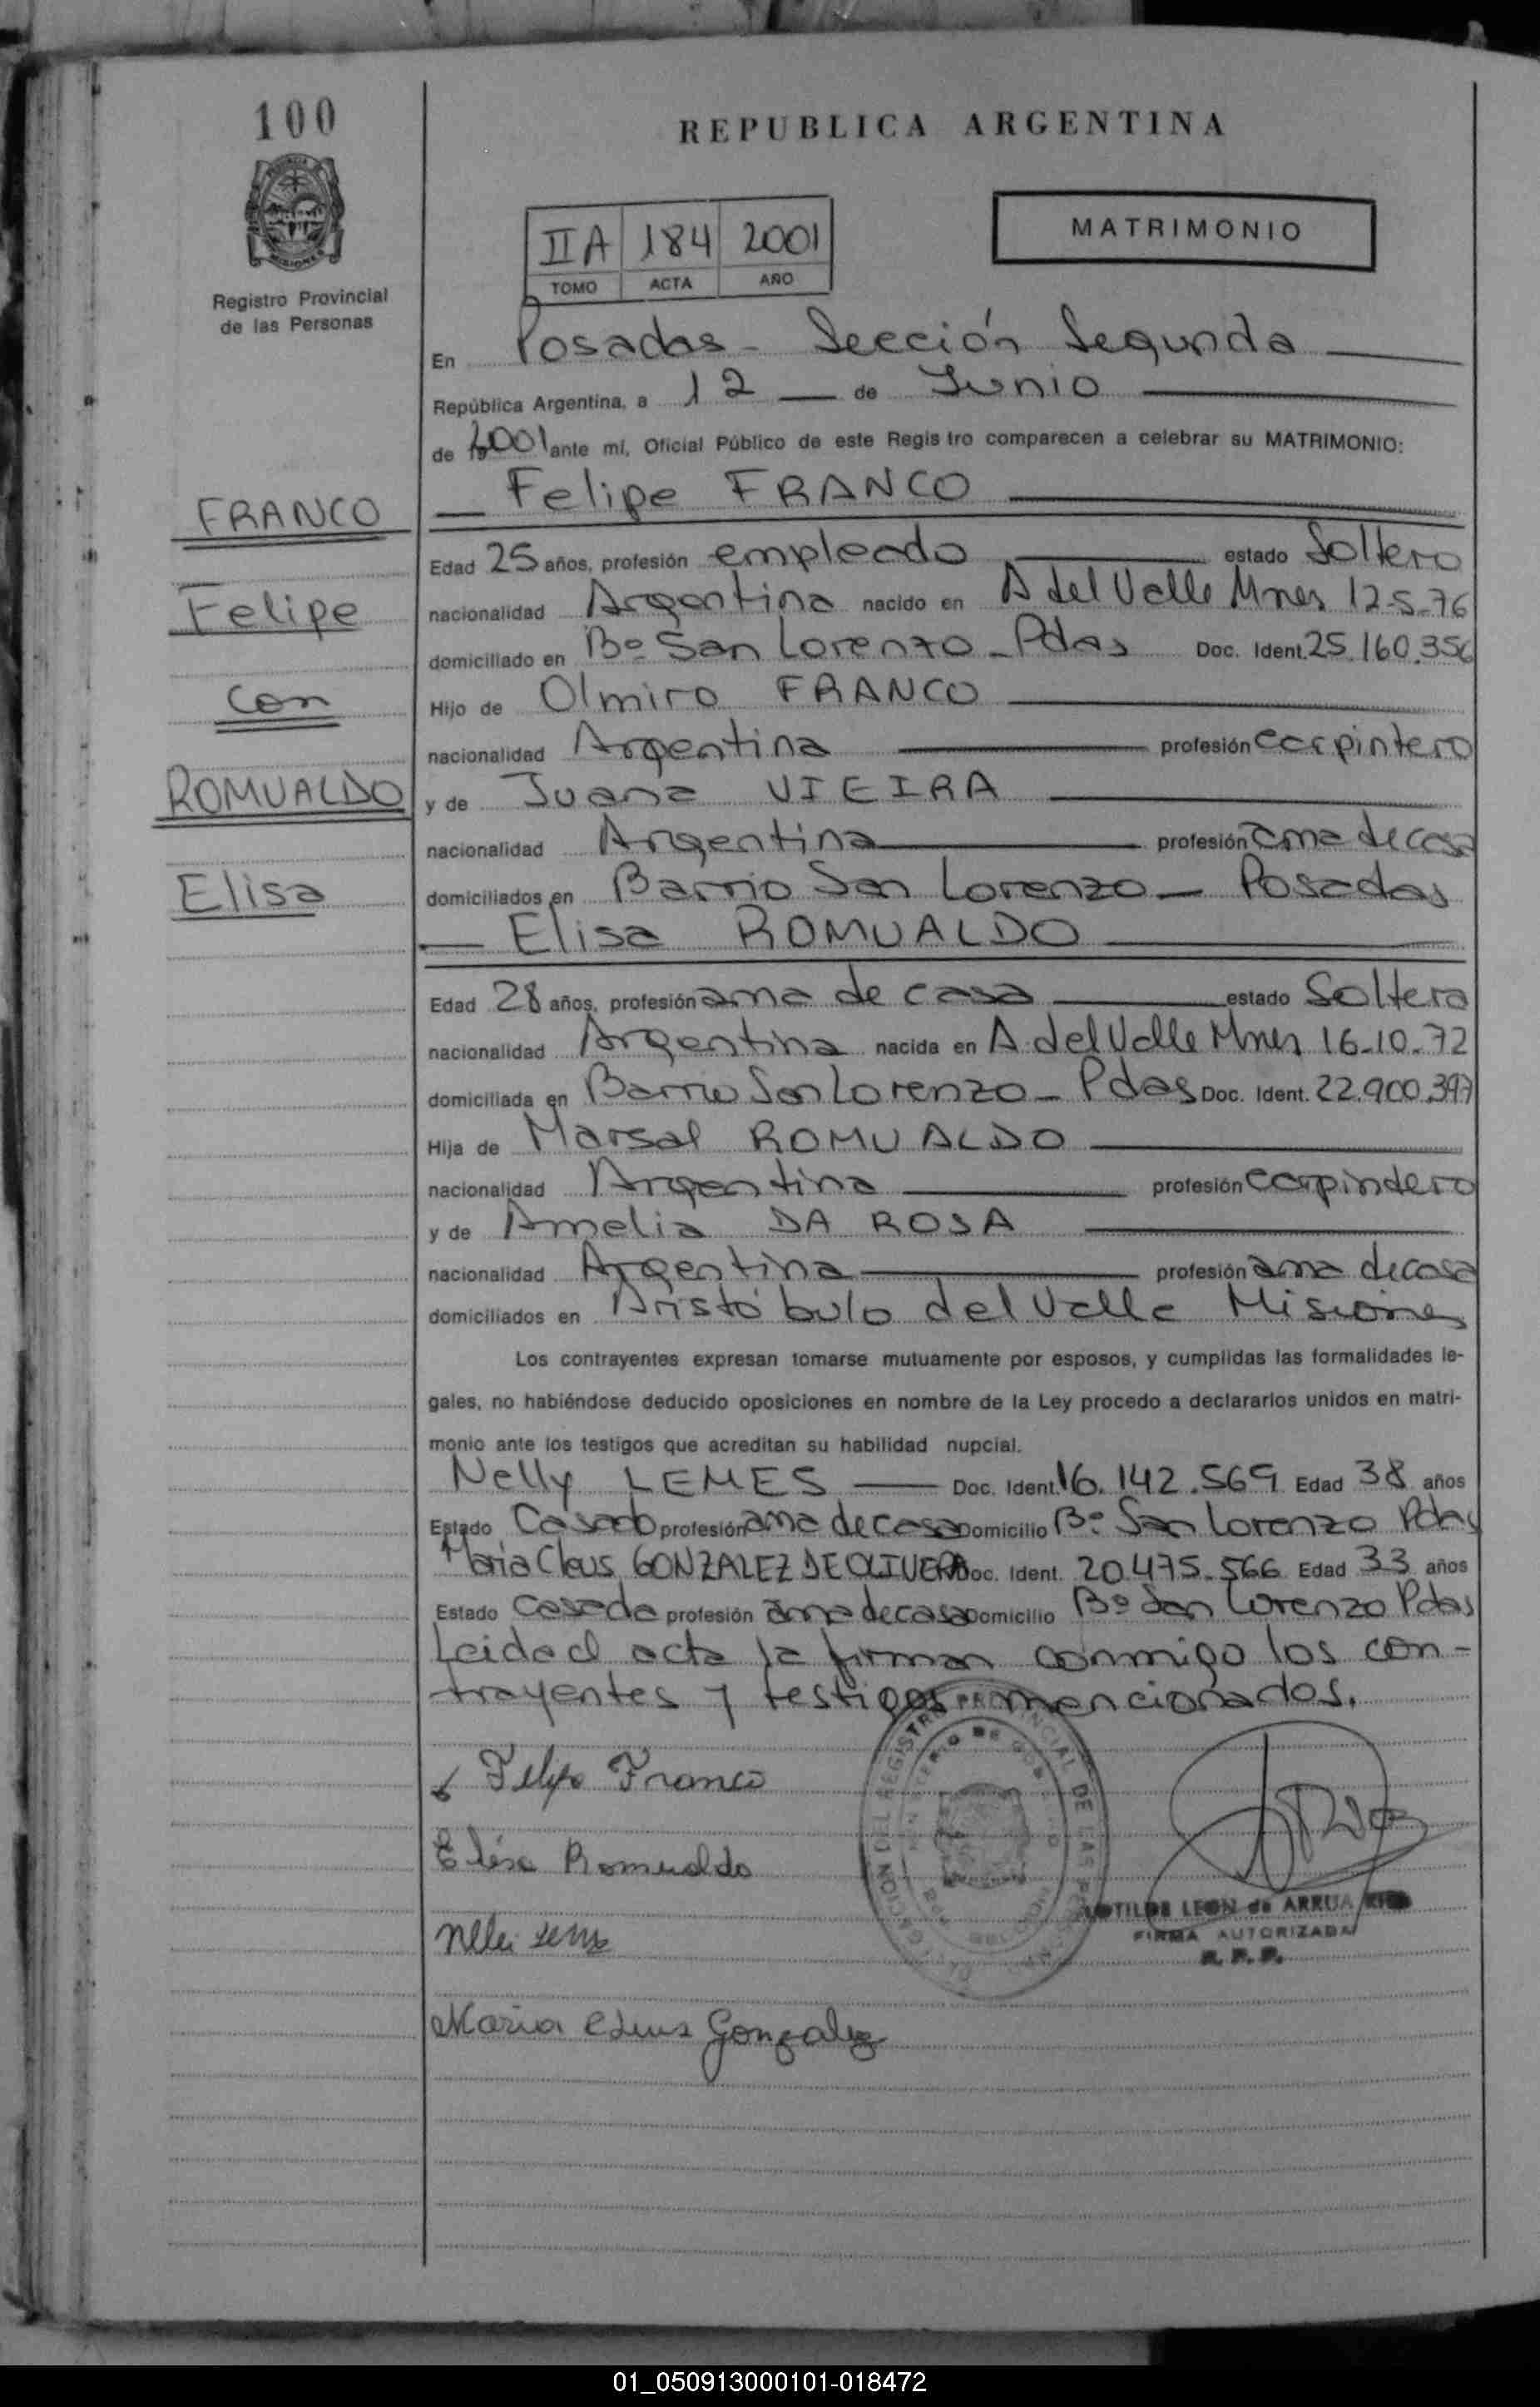 100
REPUBLICA ARGENTINA
MATRIMONIO
IIA 184 2001
TOMO ACTA AÑO
Registro Provincial
de las Personas
En Posadas - Sección Segunda
República Argentina, a 12 de Junio
de 2001 ante mí, Oficial Público de este Registro comparecen a celebrar su MATRIMONIO:
Felipe FRANCO
FRANCO
Felipe
con
ROMUALDO
Elisa
Edad 25 años, profesión empleado estado Soltero
nacionalidad Argentina nacido en A del Valle Mnes 12-5-76
domiciliado en Bº San Lorenzo - Pdas Doc. Ident. 25.160.356
Hijo de Olmiro FRANCO
nacionalidad Argentina profesión carpintero
y de Juana VIEIRA
nacionalidad Argentina profesión ama de casa
domiciliados en Barrio San Lorenzo - Posadas
Elisa ROMUALDO
Edad 28 años, profesión ama de casa estado Soltera
nacionalidad Argentina nacida en A. del Valle Mnes 16-10-72
domiciliada en Barrio San Lorenzo - Pdas Doc. Ident. 22.900.397
Hija de Marsal ROMUALDO
nacionalidad Argentina profesión carpindero
y de Amelia DA ROSA
nacionalidad Argentina profesión ama de casa
domiciliados en Aristóbulo del Valle Misiones
Los contrayentes expresan tomarse mutuamente por esposos, y cumplidas las formalidades le-
gales, no habiéndose deducido oposiciones en nombre de la Ley procedo a declararlos unidos en matri-
monio ante los testigos que acreditan su habilidad nupcial.
Nelly LEMES Doc. Ident. 16.142.569 Edad 38 años
Estado Casado profesión ama de casa Domicilio Bº San Lorenzo Pdas
Maria Cleus GONZALEZ DE OLIVERA Doc. Ident. 20.475.566 Edad 33 años
Estado Casada profesión ama de casa Domicilio Bº San Lorenzo Pdas
Leida el acta la firman conmigo los con-
trayentes y testigos mencionados.
Felipe Franco
Elisa Romualdo
Maria Gonzalez
DEL REGISTRO PROVINCIAL DE LAS
LEON de ARRUA
FIRMA AUTORIZADA
01_050913000101-018472